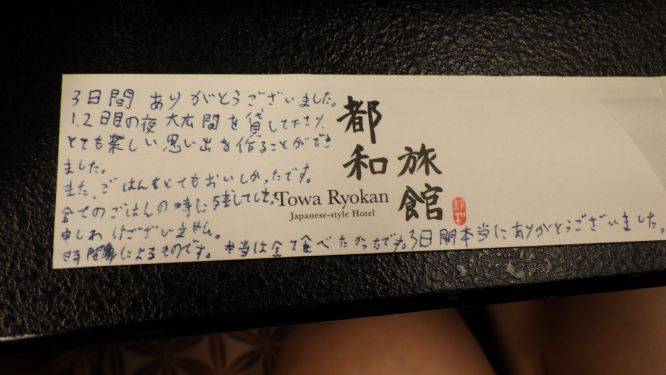 3日間 ありがとうございました。
1.2日目の夜 大広間を貸して下さり
とても楽しい思い出を作ることができ
ました。
また、ごはんもとてもおいしかったです。
全てのごはんの時に残してしまい
申しわけございません。
時間によるものです。本当は全て食べたかったです。3日間本当にありがとうございました。
都和
旅館
Towa Ryokan
Japanese-style Hotel